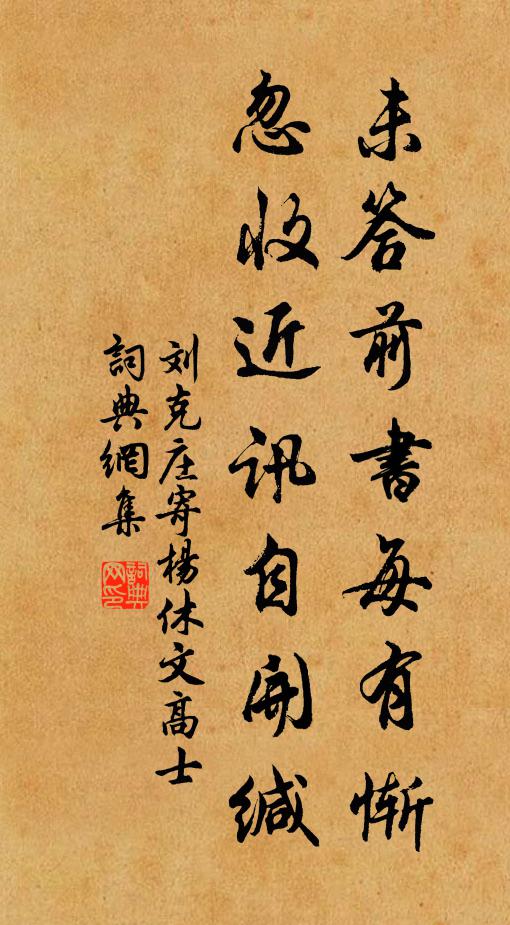 未答前書每有慚
忽收近讯自開緘
刘克庄寄楊休文高士
詞典網集
詞典网印